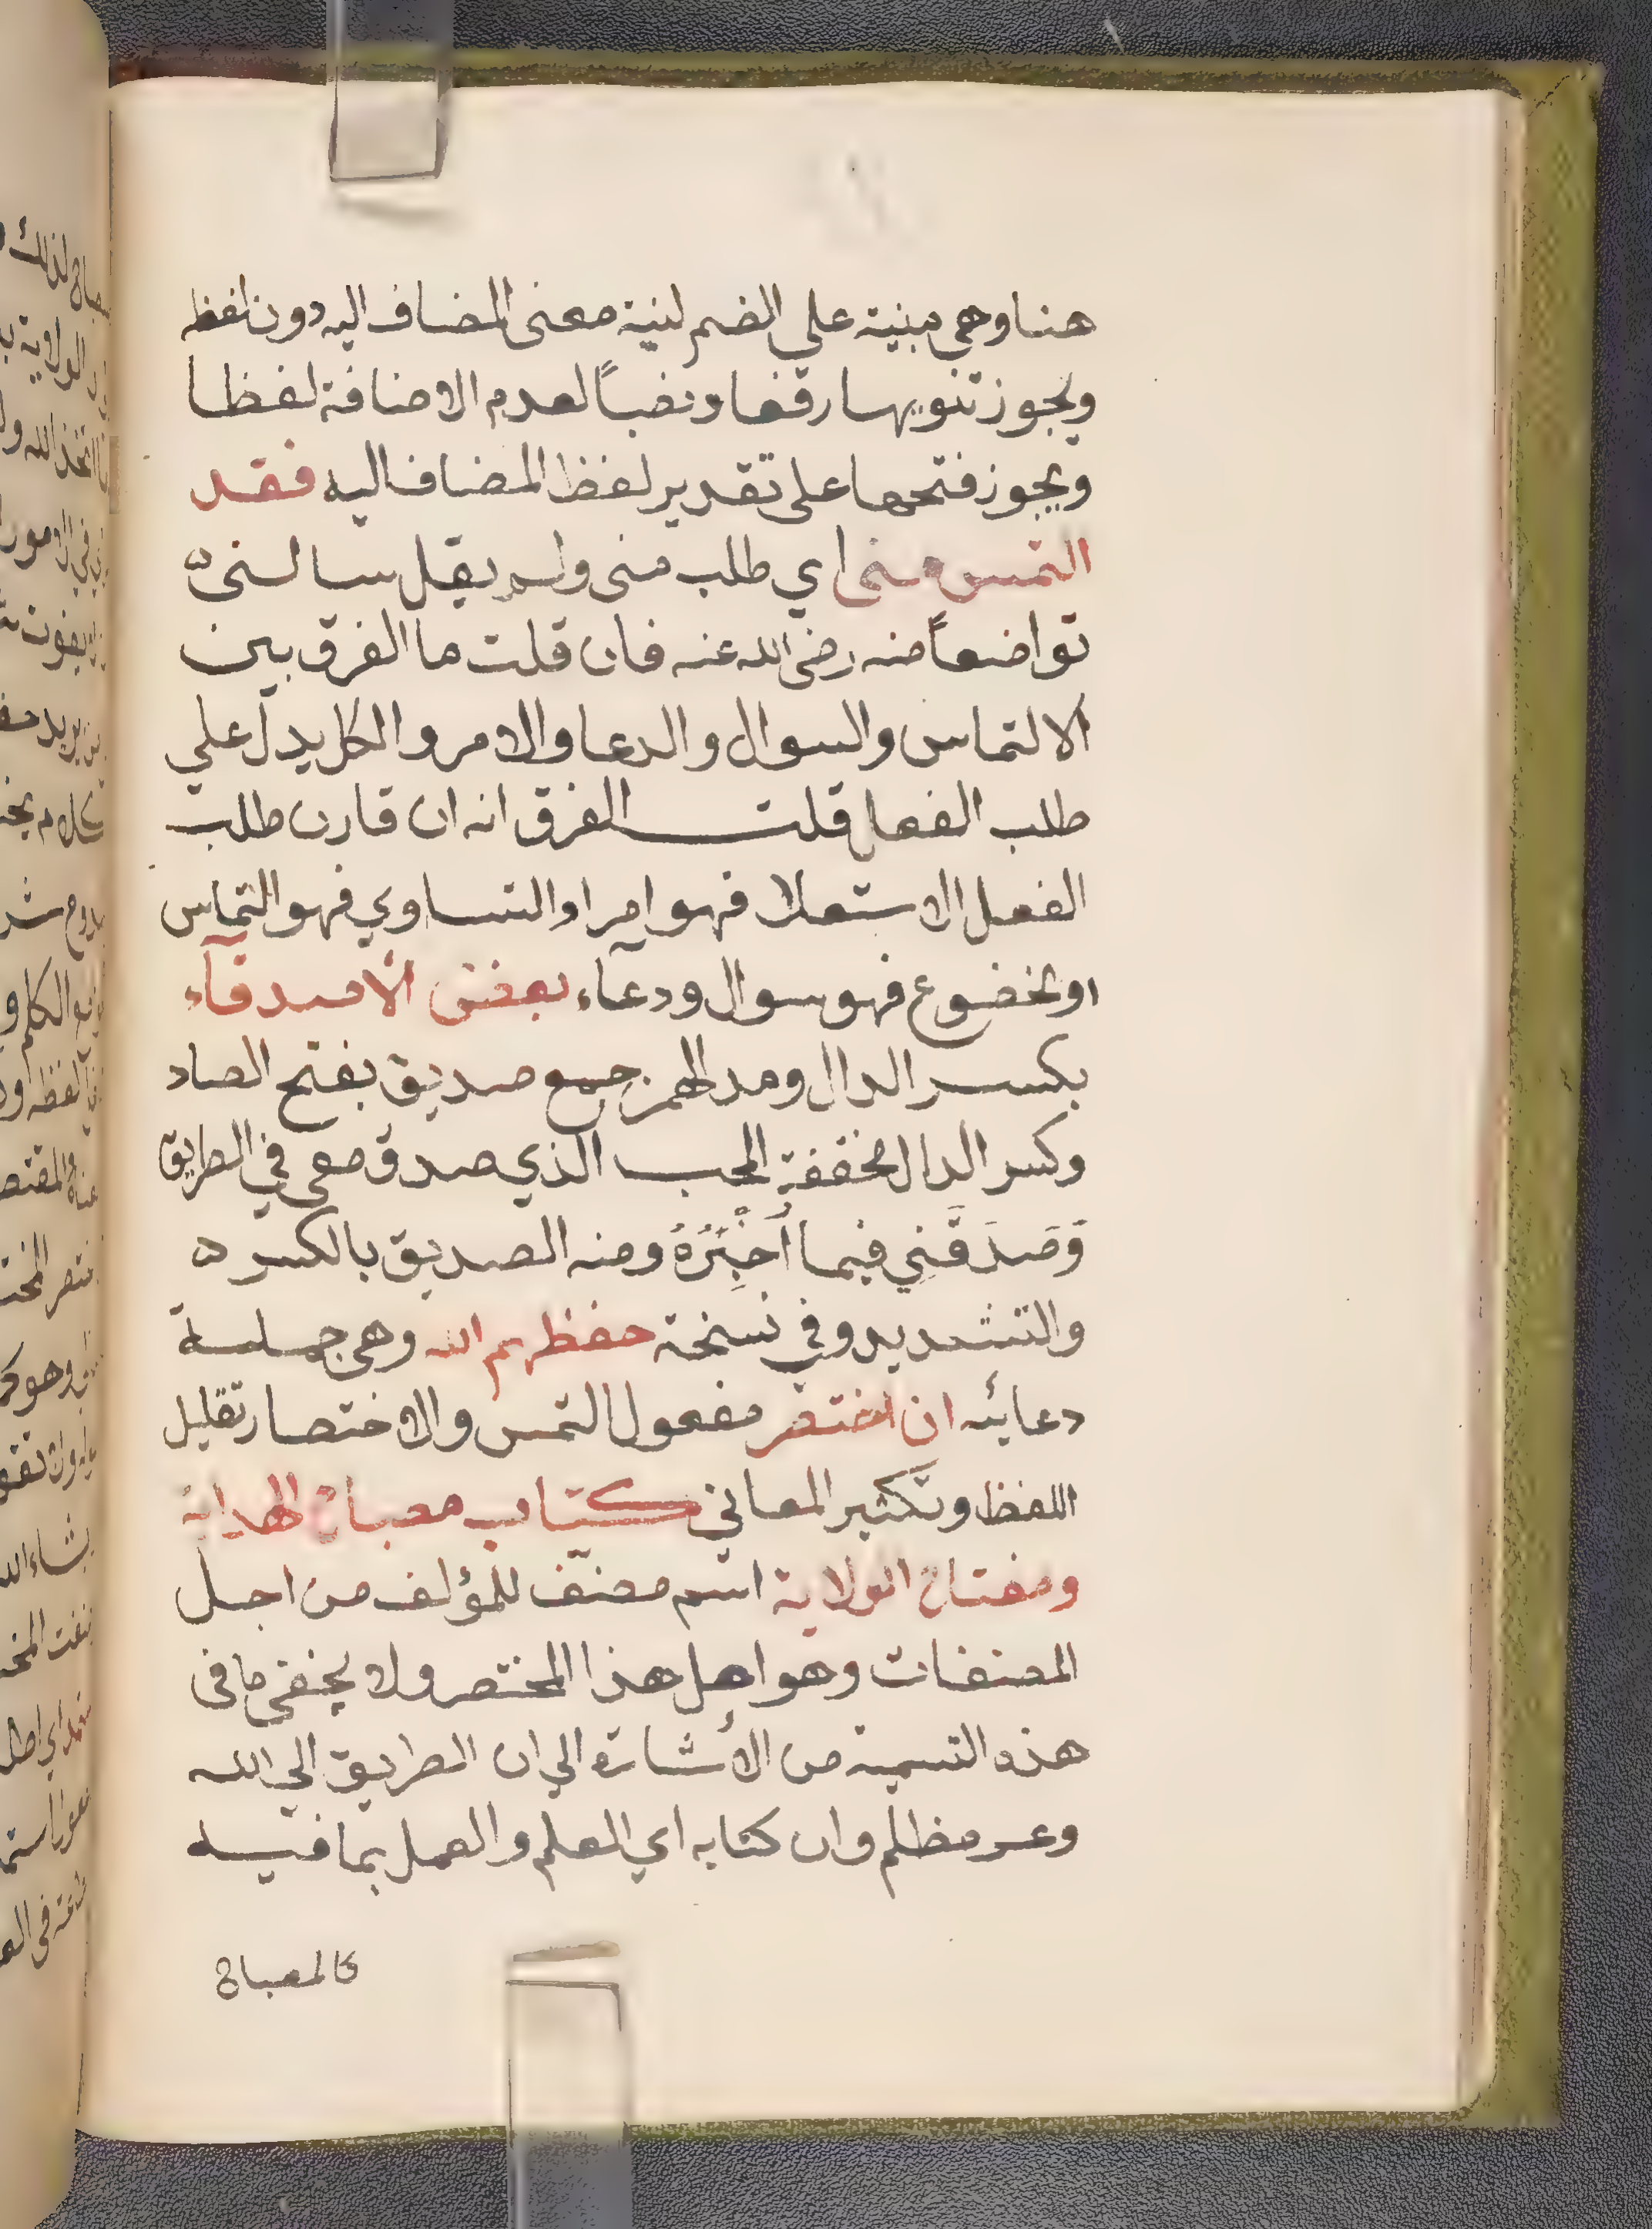 هنا وهي مبنية علي الضم لنية معنى المضاف اليه دون لفظه
ويجوز تنويهها رفعا ونصباً لعدم الاضافة لفظا
ويجوز فتحها على تقدير لفظ المضاف اليه فقد
التمس مني اي طلب مني ولم يقل سالني
تواضعاً منه رضي الله عنه فان قلت ما الفرق بين
الالتماس والسوال والدعا والامر والكل يدل علي
طلب الفعل قلت الفرق انه ان قارن طلب
الفعل الاستعلا فهو امر او التساوي فهو التماس
او بخضوع فهو سوال ودعآء بعض الاصدقآء
بكسر الدال ومد الهمز جمع صديق بفتح الصاد
وكسر الدال المخففة المحب الذي صدق معي في الطريق
وَصَدَقَنِي فيما أُخْبِرُهُ ومنه الصديق بالكسر
والتشديد وفي نسخة حفظهم الله وهي جملة
دعائيه ان اختصر مفعول التمس والاختصار تقليل
اللفظ وتكثير المعاني كتاب مصباح الهداية
ومفتاح الولاية اسم مصنف للمؤلف من اجل
المصنفات وهو اصل هذا المختصر ولا يخفى ما في
هذه التسمية من الأشارة الي ان الطريق الي الله
وعر مظلم وان كتابه اي العلم والعمل بما فيه
كالمصباح